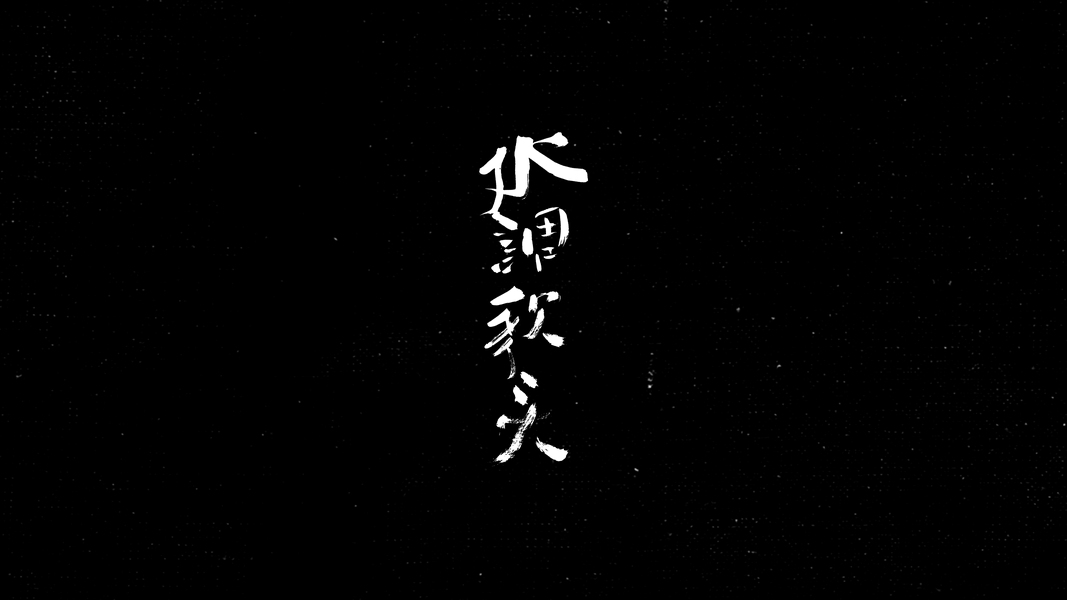 水調歌头